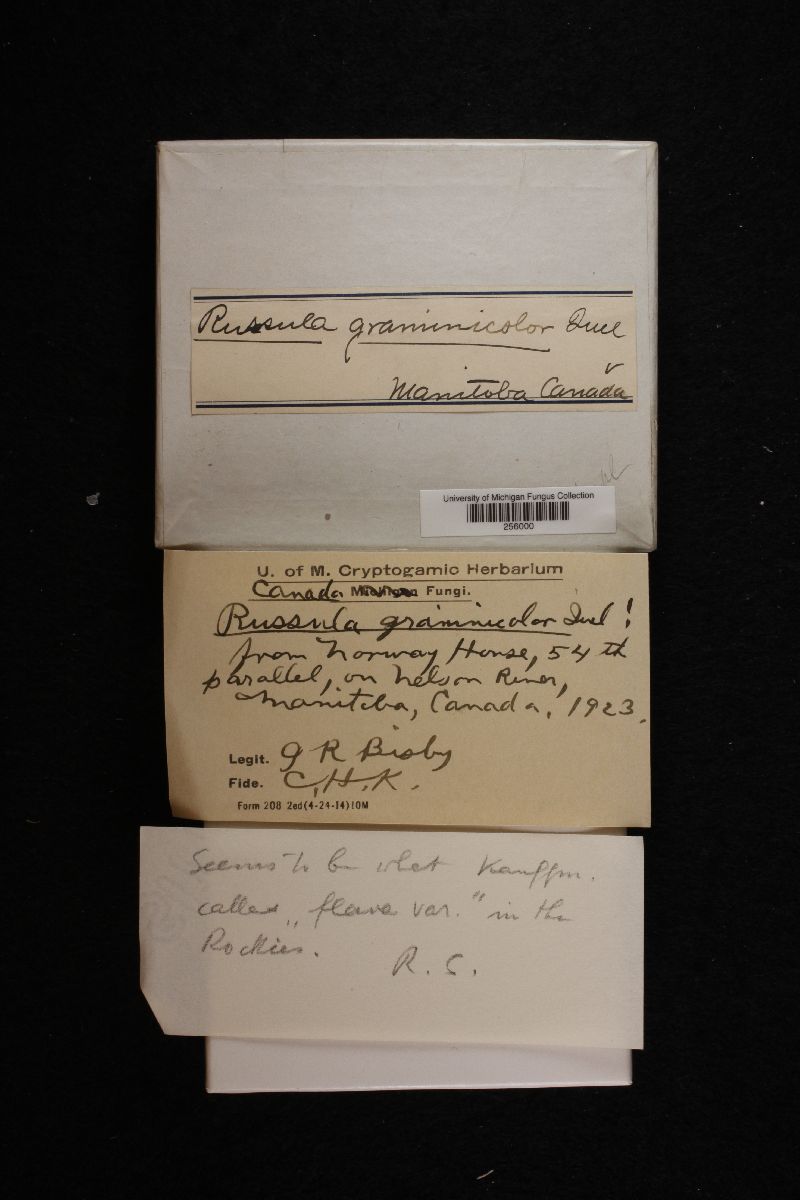 Russula graminicolor Quel
Manitoba Canada
University of Michigan Fungus Collection
256000
U. of M. Cryptogamic Herbarium
Canada Michigan Fungi.
Russula graminicolor Quel !
from Norway House, 54 th
parallel, on Nelson River,
Manitoba, Canada, 1923.
Legit. G R Bisby
Fide. C.H.K.
Form 208 2ed(4-24-14)10M
Seems to be what Kauffm.
called "flava var." in the
Rockies.
R. S.